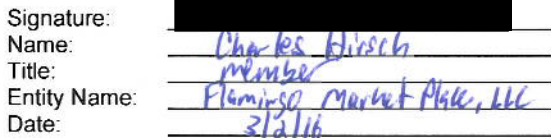 Signature:
Name: Charles Hirsch
Title: member
Entity Name: Flamingo Market Place, LLC
Date: 3/2/16